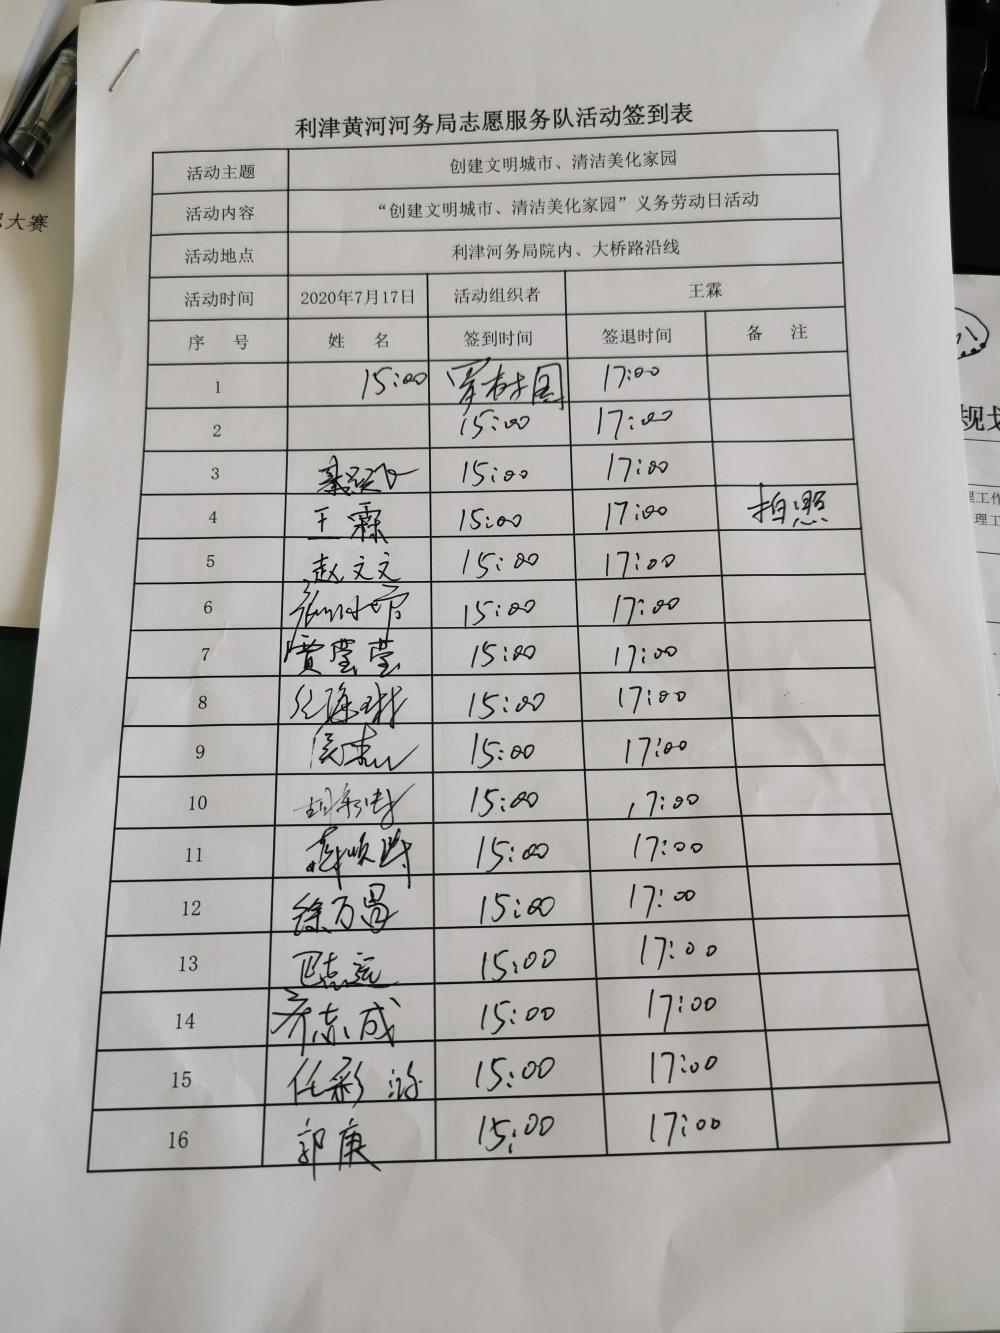 利津黄河河务局志愿服务队活动签到表
活动主题 创建文明城市、清洁美化家园
活动内容 “创建文明城市、清洁美化家园”义务劳动日活动
活动地点 利津河务局院内、大桥路沿线
活动时间 2020年7月17日 活动组织者 王霖
序 号 姓 名 签到时间 签退时间 备 注
1 15:00 17:00
2 15:00 17:00
3 15:00 17:00
4 王霖 15:00 17:00 拍照
5 赵文文 15:00 17:00
6 15:00 17:00
7 贾莹莹 15:00 17:00
8 15:00 17:00
9 15:00 17:00
10 15:00 17:00
11 15:00 17:00
12 徐万昌 15:00 17:00
13 15:00 17:00
14 齐志成 15:00 17:00
15 任彩 15:00 17:00
16 郭庚 15:00 17:00
大赛
规划
理工作
理工